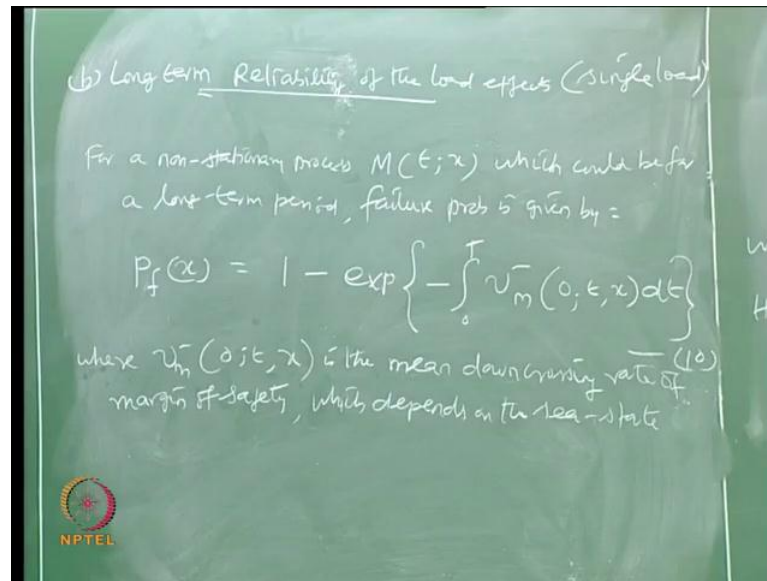 (b) Long term Reliability of the load effects (single load)
For a non-stationary process M(t; x) which could be for
a long-term period, failure prob is given by =
P_f(x) = 1 - exp{ - ∫_0^T ν_m^-(0; t, x) dt }
— (10)
where ν_m^-(0; t, x) is the mean downcrossing rate of
margin of safety, which depends on the sea-state
W
H
NPTEL